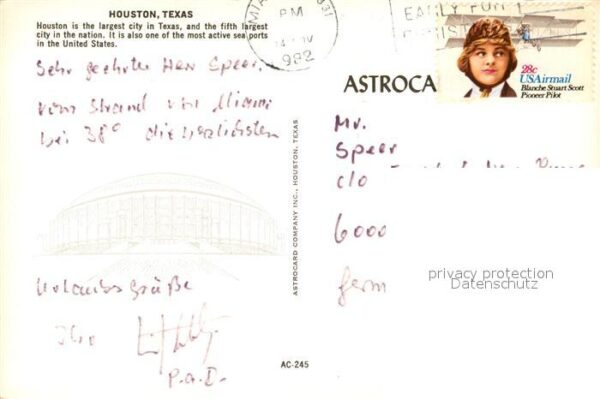 HOUSTON, TEXAS
Houston is the largest city in Texas, and the fifth largest
city in the nation. It is also one of the most active sea ports
in the United States.
Sehr geehrter Herr Speer,
vom Strand von Miami
bei 38° die herzlichsten
Urlaubsgrüße
Ihr
P.a.I.
ASTROCARD COMPANY INC., HOUSTON, TEXAS
AC-245
MIA
331
PM
1982
EARLY FOR
CHRISTMAS
ASTROCARD
28c
USAirmail
Blanche Stuart Scott
Pioneer Pilot
Mr.
Speer
c/o
6000
Germ
privacy protection
Datenschutz